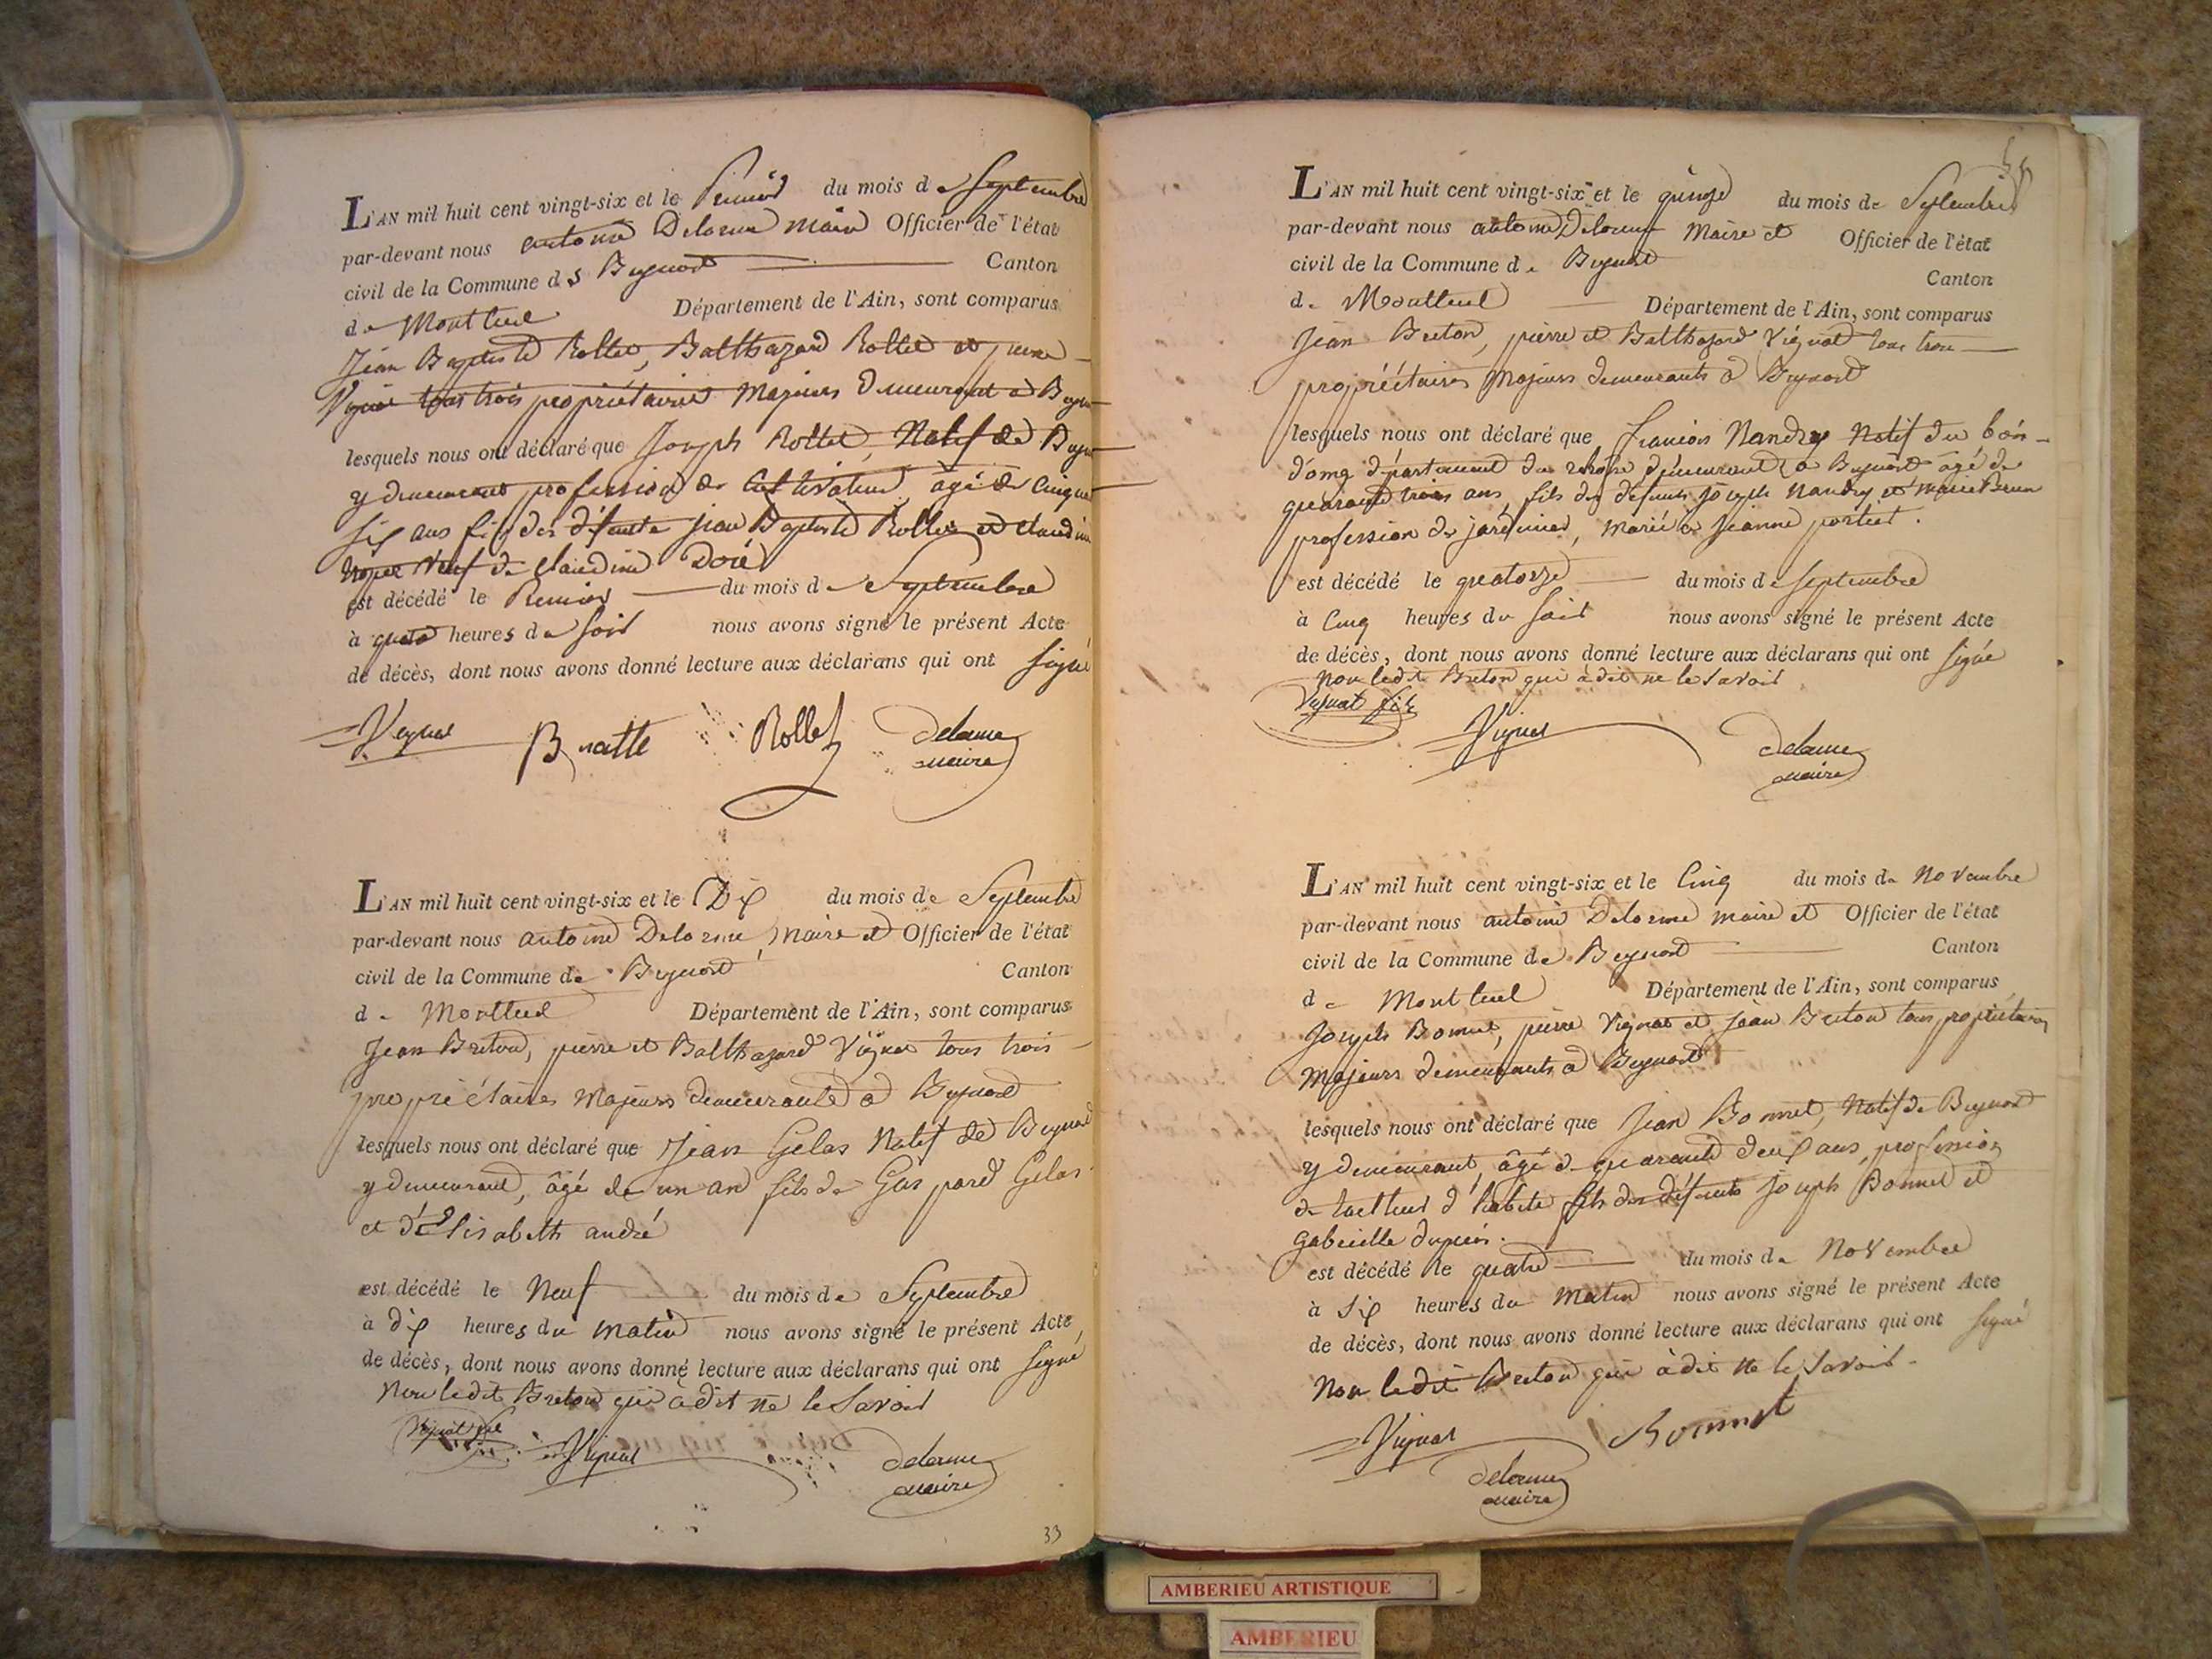 L'AN mil huit cent vingt-six et le Premier du mois de Septembre
par-devant nous antoine Delorme maire Officier de l'état
civil de la Commune de Beynost Canton
de Montluel Département de l'Ain, sont comparus
Jean Baptiste Rollet, Balthazard Rollet et pierre
Vignat tous trois propriétaires Majeurs demeurant a Beyn
lesquels nous ont déclaré que Joseph Rollet, Natif de Beyn
y demeurant profession de Cultivateur, âgé de Cinquante
six ans fils des défunts jean Baptiste Rollet et Claudine
veuf de Claudine Doré
est décédé le Premier du mois de Septembre
à quatre heures de soir nous avons signé le présent Acte
de décès, dont nous avons donné lecture aux déclarans qui ont signé
Vignat Rollet Delorme
maire
L'AN mil huit cent vingt-six et le Dix du mois de Septembre
par-devant nous antoine Delorme Maire et Officier de l'état
civil de la Commune de Beynost Canton
de Montluel Département de l'Ain, sont comparus
Jean Breton, pierre et Balthazard Vignat tous trois
propriétaires Majeurs demeurants a Beynost
lesquels nous ont déclaré que Jean Gelas Natif de Beynost
y demeurant, âgé de un an fils de Gaspard Gelas
et d'Elisabeth andré
est décédé le Neuf du mois de Septembre
à dix heures du matin nous avons signé le présent Acte
de décès, dont nous avons donné lecture aux déclarans qui ont signé
Non ledit Breton qui à dit ne le Savoir
Vignat fils Vignat Delorme
maire
33
L'AN mil huit cent vingt-six et le quinze du mois de Septembre
par-devant nous antoine Delorme Maire et Officier de l'état
civil de la Commune de Beynost Canton
de Montluel Département de l'Ain, sont comparus
Jean Breton, pierre et Balthazard Vignat tous trois
propriétaires Majeurs demeurants a Beynost
lesquels nous ont déclaré que francois Nandry Natif du bois
d'oing département du rhône demeurant a Beynost âgé de
quarante trois ans fils des défunts joseph Nandry et Marie Brun
profession de jardinier, Marié a Jeanne portier.
est décédé le quatorze du mois de Septembre
à Cinq heures du soir nous avons signé le présent Acte
de décès, dont nous avons donné lecture aux déclarans qui ont signé
Non ledit Breton qui à dit ne le Savoir
Vignat fils
Vignat Delorme
maire
L'AN mil huit cent vingt-six et le Cinq du mois de Novembre
par-devant nous antoine Delorme maire et Officier de l'état
civil de la Commune de Beynost Canton
de Montluel Département de l'Ain, sont comparus
Joseph Bonnet, pierre Vignat et Jean Breton tous propriétaires
Majeurs demeurants a Beynost
lesquels nous ont déclaré que Jean Bonnet, Natif de Beynost
y demeurant, âgé de quarante deux ans, profession
de tailleur d'habits fils des défunts Joseph Bonnet et
Gabrielle dupuis.
est décédé le quatre du mois de Novembre
à Six heures du Matin nous avons signé le présent Acte
de décès, dont nous avons donné lecture aux déclarans qui ont signé
Non ledit Breton qui à dit ne le Savoir.
Vignat Bonnet
Delorme
maire
AMBERIEU ARTISTIQUE
AMBERIEU